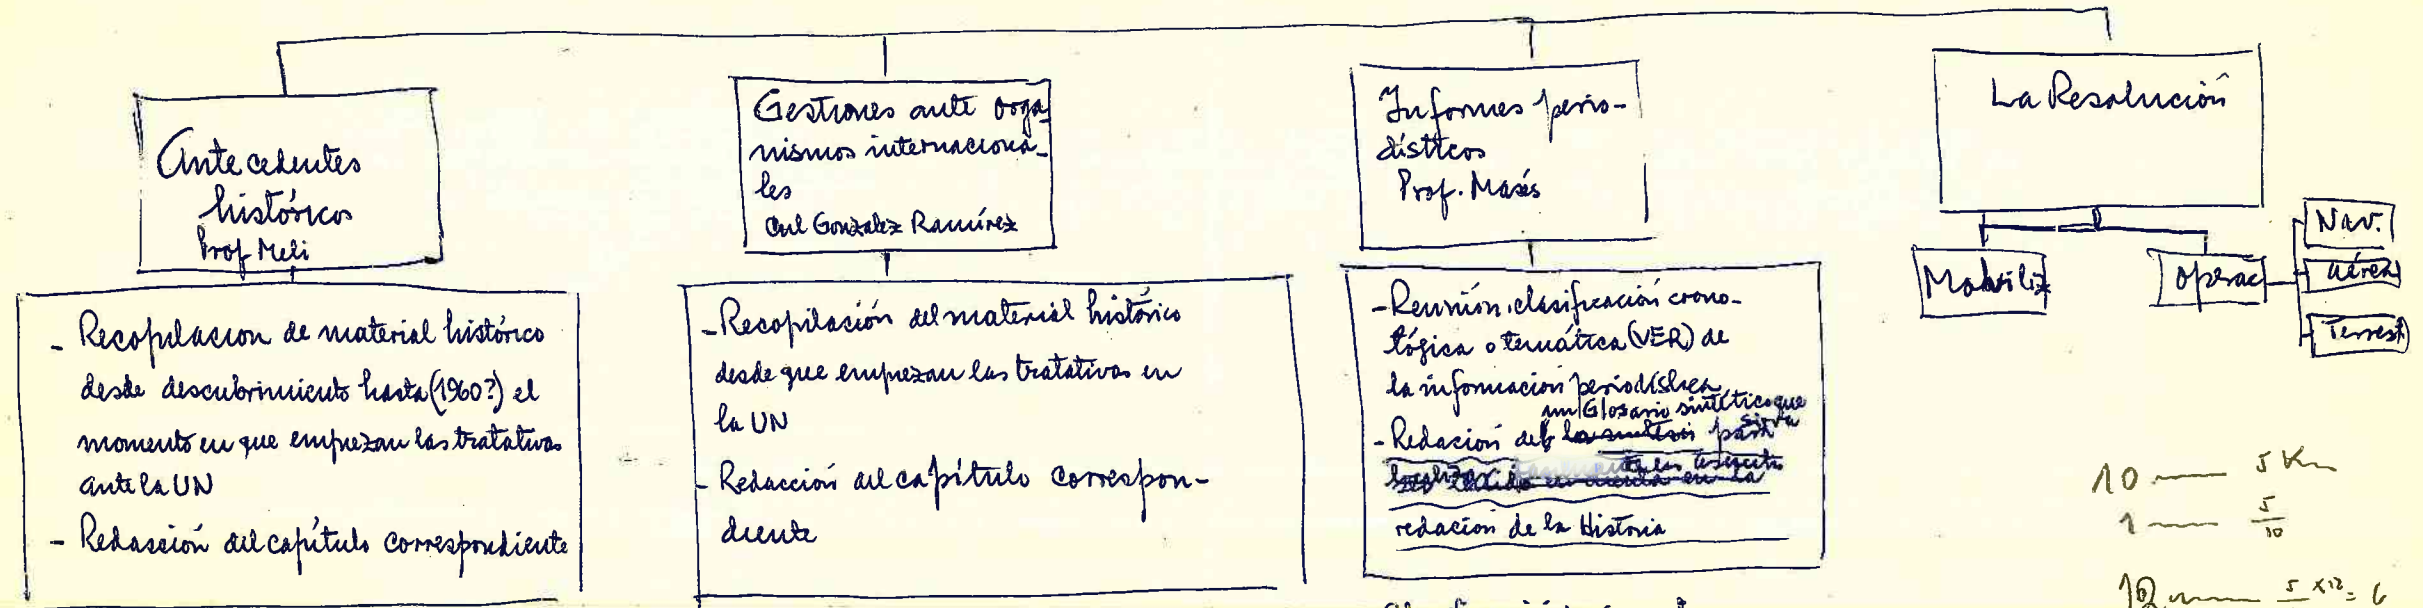 Antecedentes
históricos
Prof Meli
- Recopilacion de material histórico
desde descubrimiento hasta (1960?) el
momento en que empiezan las tratativas
ante la UN
- Redacción del capítulo correspondiente
Gestiones ante orga-
nismos internaciona-
les
Cnl Gonzalez Ramírez
- Recopilación del material histórico
desde que empiezan las tratativas en
la UN
- Redacción del capítulo correspon-
diente
Informes perio-
dísticos
Prof. Masés
- Reunión, clasificación crono-
lógica o temática (VER) de
la información periodística
un Glosario sintético que
- Redación de la sintesis para sirva
redación de la Historia
La Resolución
Moviliz
Operac
Nav.
Aérea
Terrest
10 5 Km
1 5/10
12 5 x12 = 6